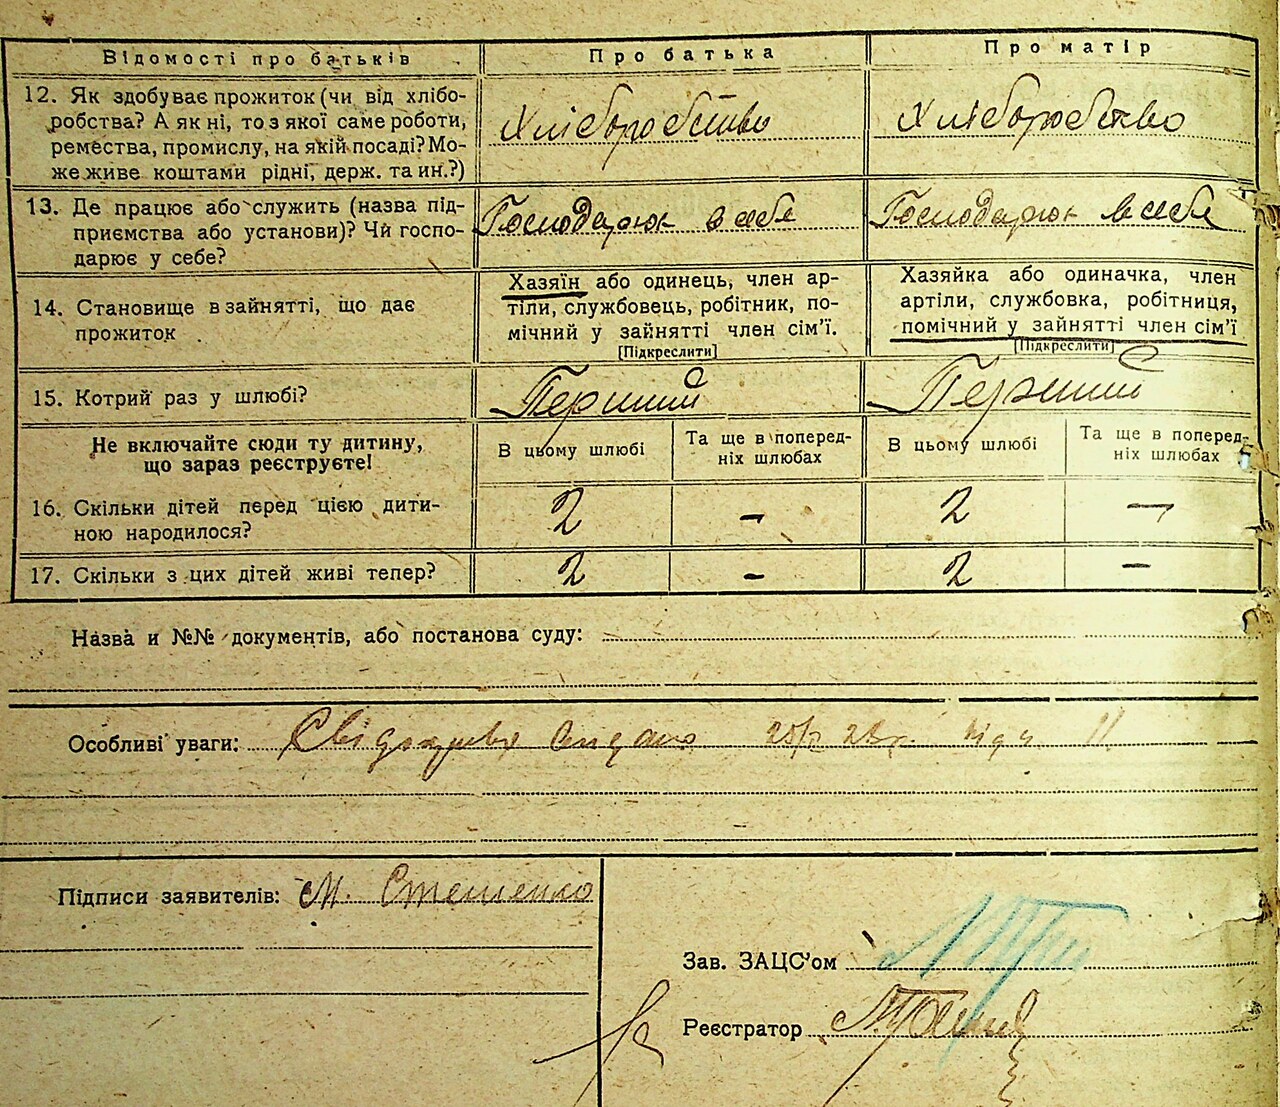 Відомості про батьків
Про батька
Про матір
12. Як здобуває прожиток (чи від хлібо-
робства? А як ні, то з якої саме роботи,
ремества, промислу, на якій посаді? Мо-
же живе коштами рідні, держ. та ин.?)
Хліборобство
Хліборобство
13. Де працює або служить (назва під-
приємства або установи)? Чи госпо-
дарює у себе?
Господарюк в себе
Господарюк в себе
14. Становище в зайнятті, що дає
прожиток
Хазяїн або одинець, член ар-
тіли, службовець, робітник, по-
мічний у зайнятті член сім'ї.
[Підкреслити]
Хазяйка або одиначка, член
артіли, службовка, робітниця,
помічний у зайнятті член сім'ї
[Підкреслити]
15. Котрий раз у шлюбі?
Перший
Перший
Не включайте сюди ту дитину,
що зараз реєструєте!
В цьому шлюбі
Та ще в поперед-
ніх шлюбах
В цьому шлюбі
Та ще в поперед-
ніх шлюбах
16. Скільки дітей перед цією дити-
ною народилося?
2
-
2
-
17. Скільки з цих дітей живі тепер?
2
-
2
-
Назва и №№ документів, або постанова суду:
Особливі уваги: 11
Підписи заявителів: М. Стешенко
Зав. ЗАЦС'ом
Реєстратор